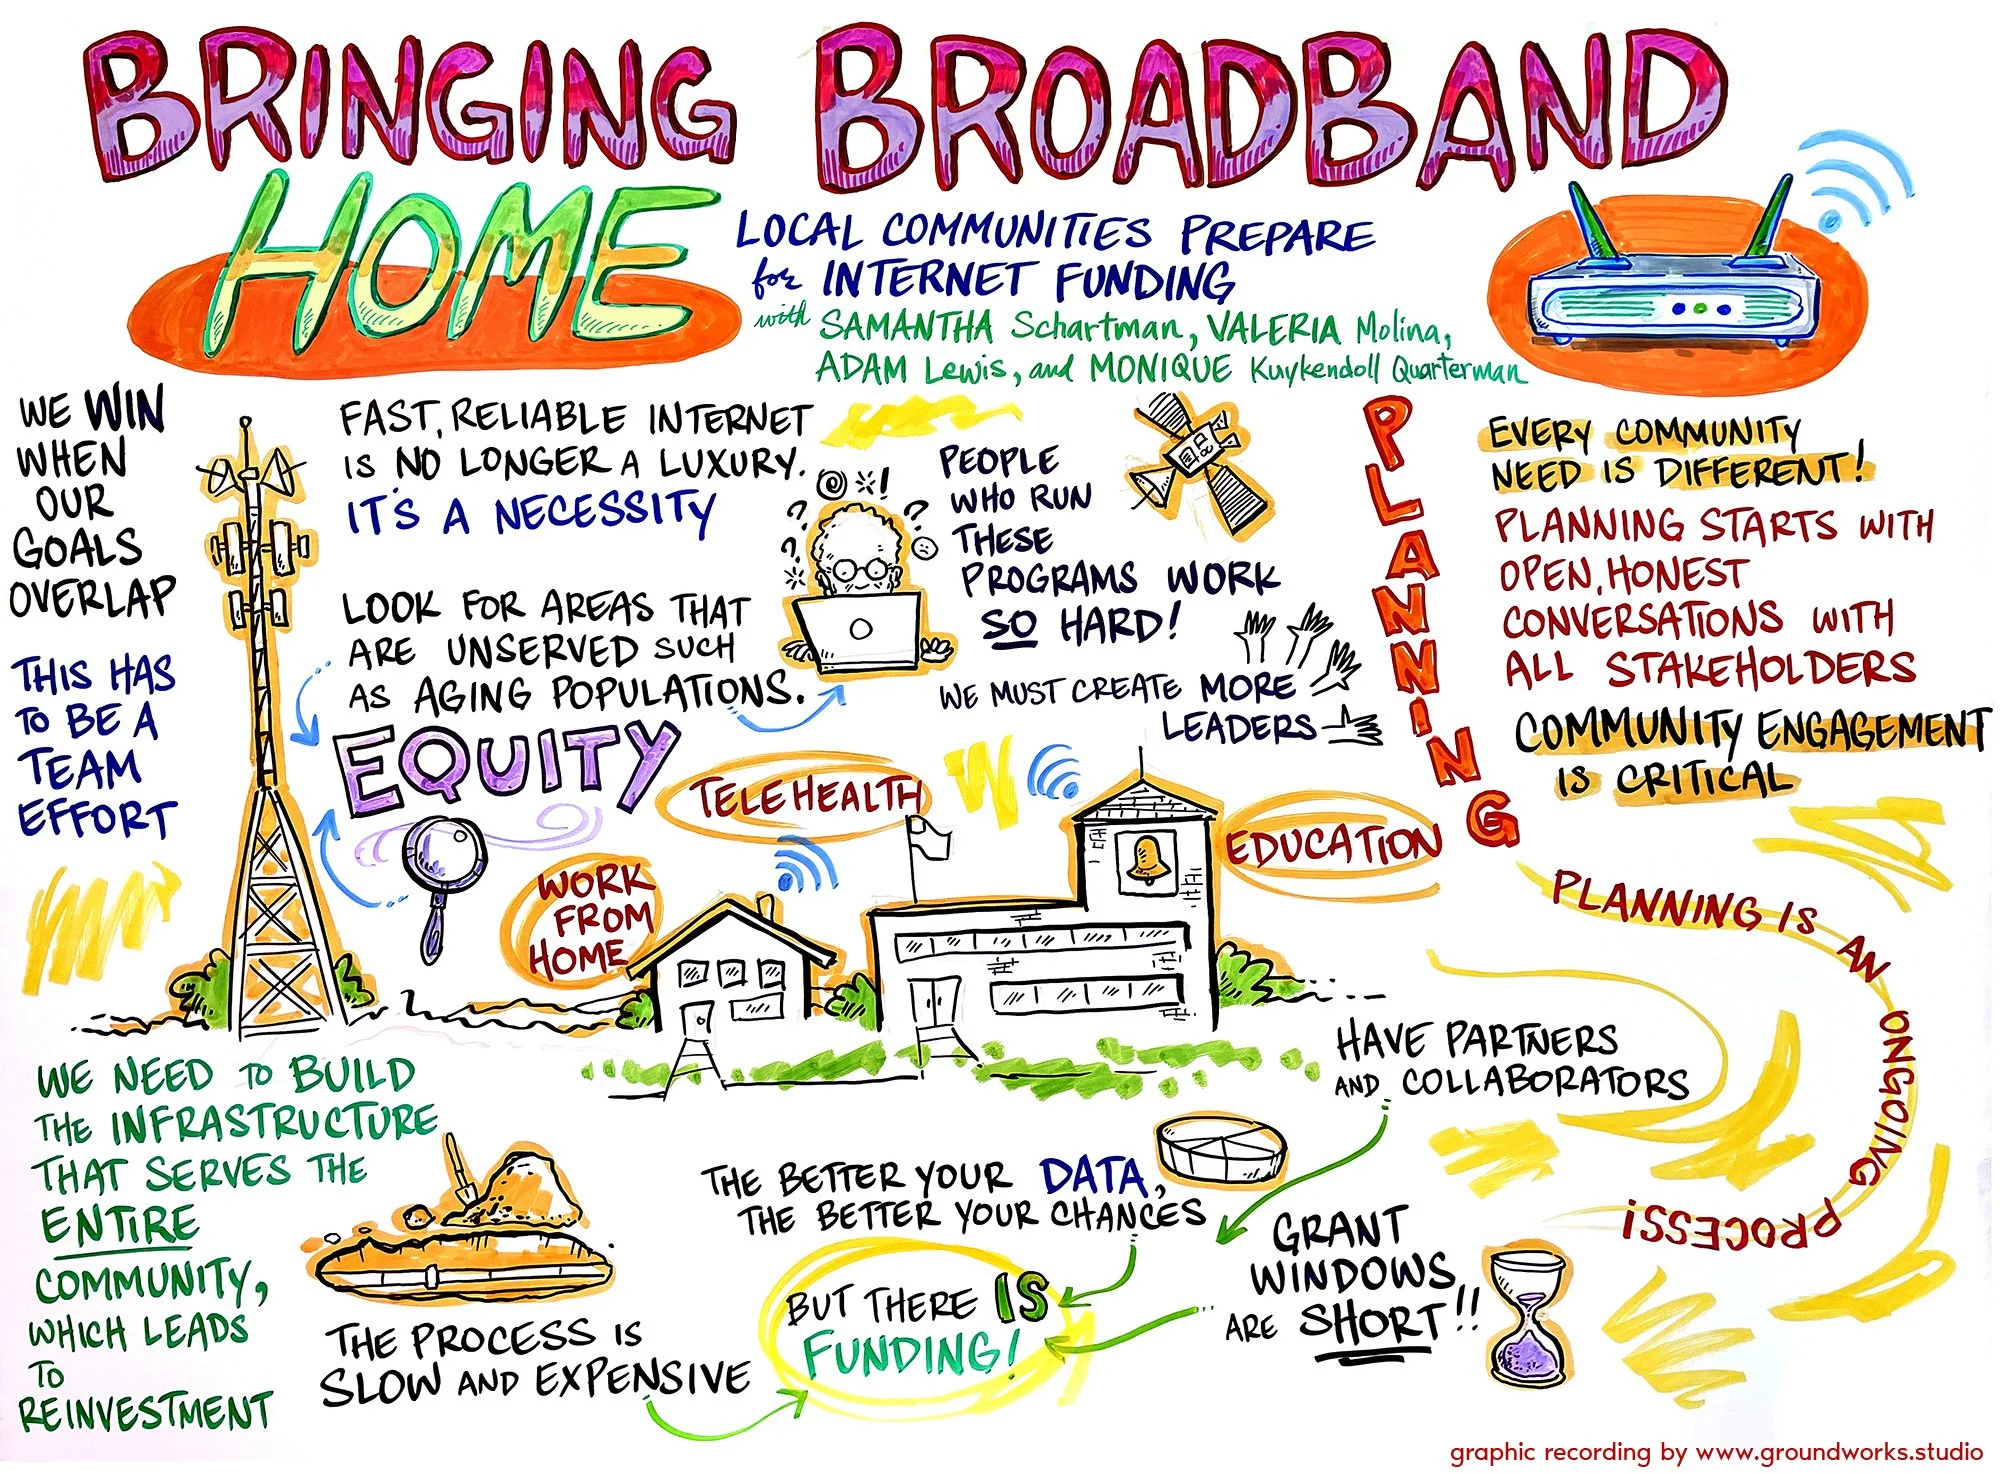 BRINGING BROADBAND
HOME
LOCAL COMMUNITIES PREPARE
for INTERNET FUNDING
with SAMANTHA Schartman, VALERIA Molina,
ADAM Lewis, and MONIQUE Kuykendoll Quarterman
WE WIN
WHEN
OUR
GOALS
OVERLAP
THIS HAS
TO BE A
TEAM
EFFORT
FAST, RELIABLE INTERNET
IS NO LONGER A LUXURY.
IT'S A NECESSITY
LOOK FOR AREAS THAT
ARE UNSERVED SUCH
AS AGING POPULATIONS.
EQUITY
? ! ?
?
PEOPLE
WHO RUN
THESE
PROGRAMS WORK
SO HARD!
WE MUST CREATE MORE
LEADERS
PLANNING
EVERY COMMUNITY
NEED IS DIFFERENT!
PLANNING STARTS WITH
OPEN, HONEST
CONVERSATIONS WITH
ALL STAKEHOLDERS
COMMUNITY ENGAGEMENT
IS CRITICAL
TELEHEALTH
WORK
FROM
HOME
EDUCATION
PLANNING IS AN ONGOING PROCESS!
HAVE PARTNERS
AND COLLABORATORS
WE NEED TO BUILD
THE INFRASTRUCTURE
THAT SERVES THE
ENTIRE
COMMUNITY,
WHICH LEADS
TO
REINVESTMENT
THE PROCESS IS
SLOW AND EXPENSIVE
THE BETTER YOUR DATA,
THE BETTER YOUR CHANCES
BUT THERE IS
FUNDING!
GRANT
WINDOWS
ARE SHORT!!
graphic recording by www.groundworks.studio